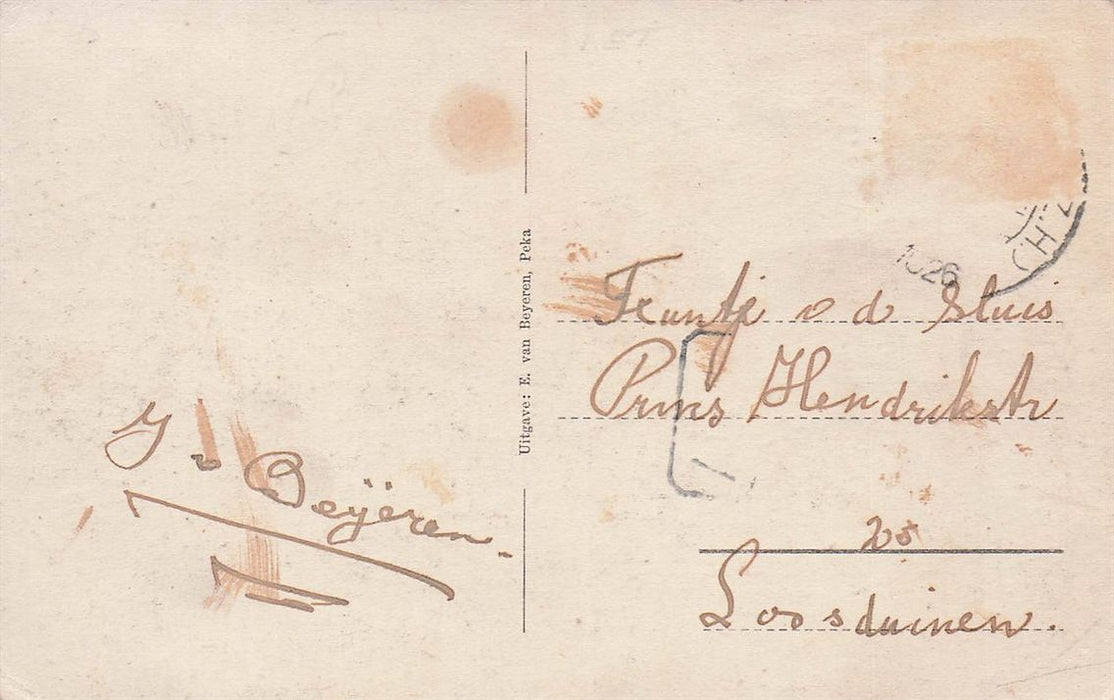 J v Beyeren.
Uitgave: E. van Beyeren, Peka
1926
Teuntje v d Sluis
Prins Hendrikstr
25
Loosduinen.